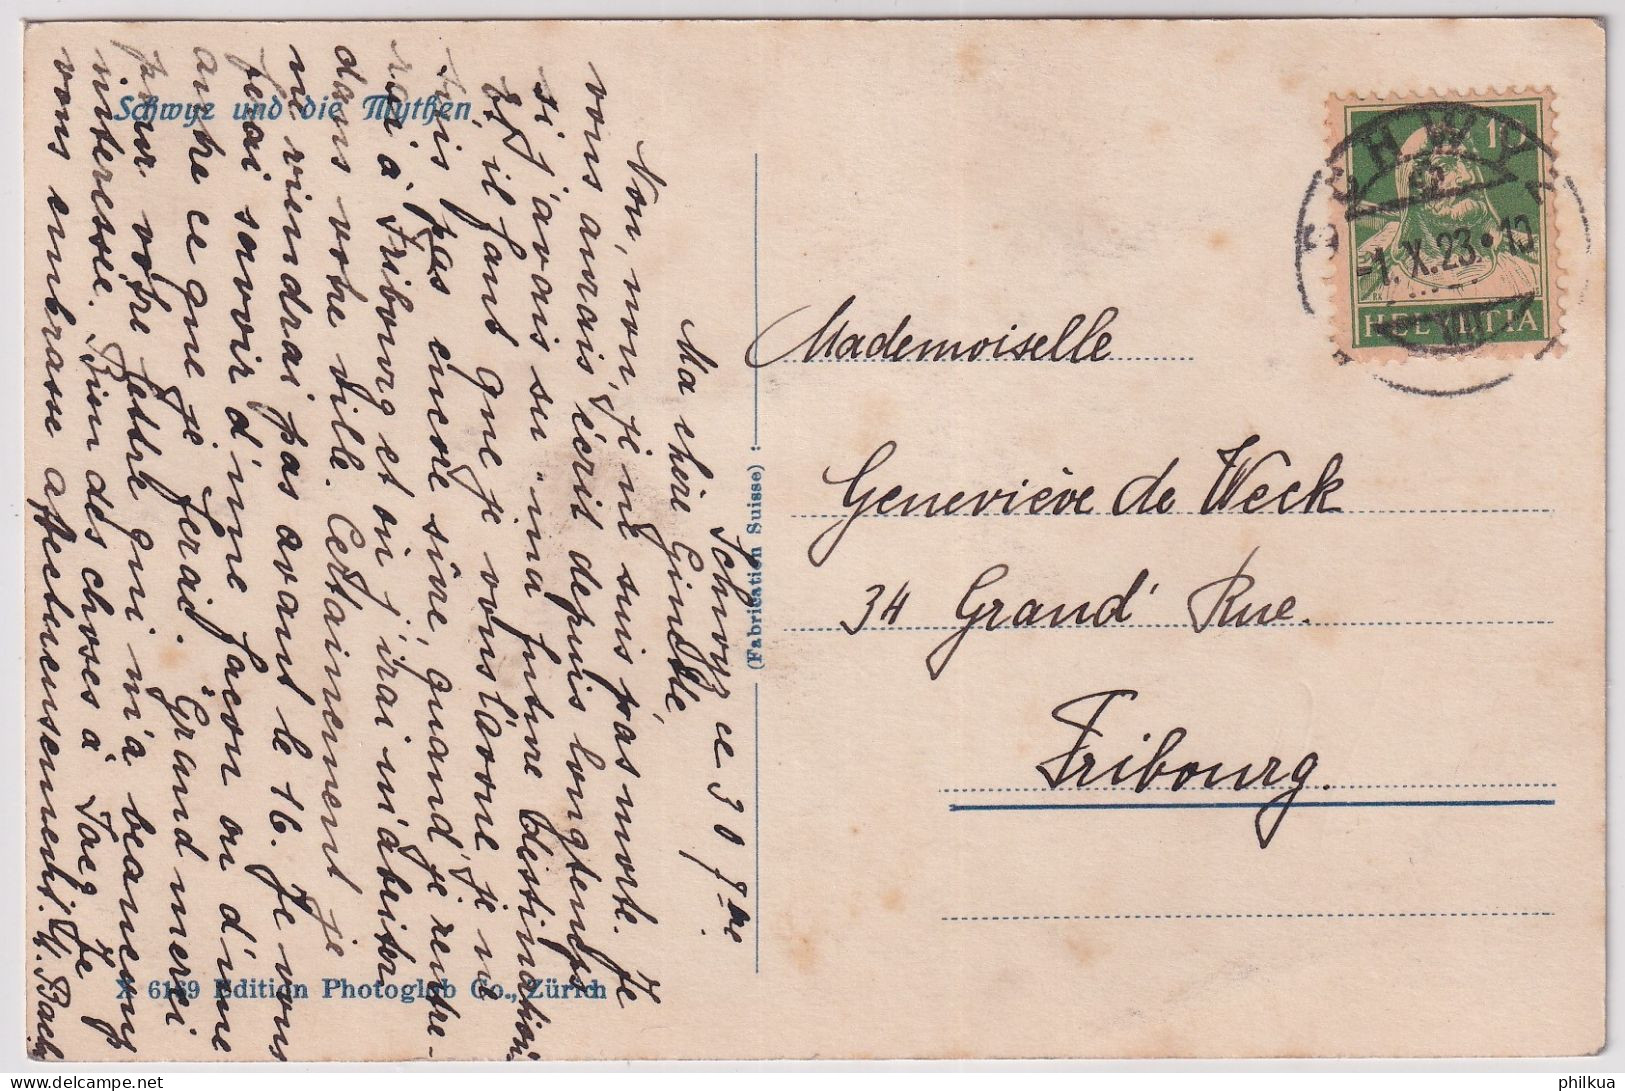 Schwyz und die Mythen
Schwyz ce 30 7bre.
Ma chère Ginette,
Non, non, je ne suis pas morte. Je
vous aurais écrit depuis longtemps
si j'avais su ma future destination.
Et il faut que je vous l'avoue je ne
suis pas encore sûre, quand je rentre-
rai à Fribourg et où j'irai m'abriter
dans votre ville. Certainement je
ne viendrai pas avant le 16. Je vous
ferai savoir d'une façon ou d'une
autre ce que je ferai. Grand merci
pour votre lettre qui m'a beaucoup
interessée. Bien des choses à Jacq. Je
vous embrasse affectueusement.
X 6169 Edition Photoglob Co., Zürich
(Fabrication Suisse)
Mademoiselle
Geneviève de Weck
34 Grand' Rue.
Fribourg.
SCHWYZ
-1.X.23
HELVETIA
10
philkua
delcampe.net